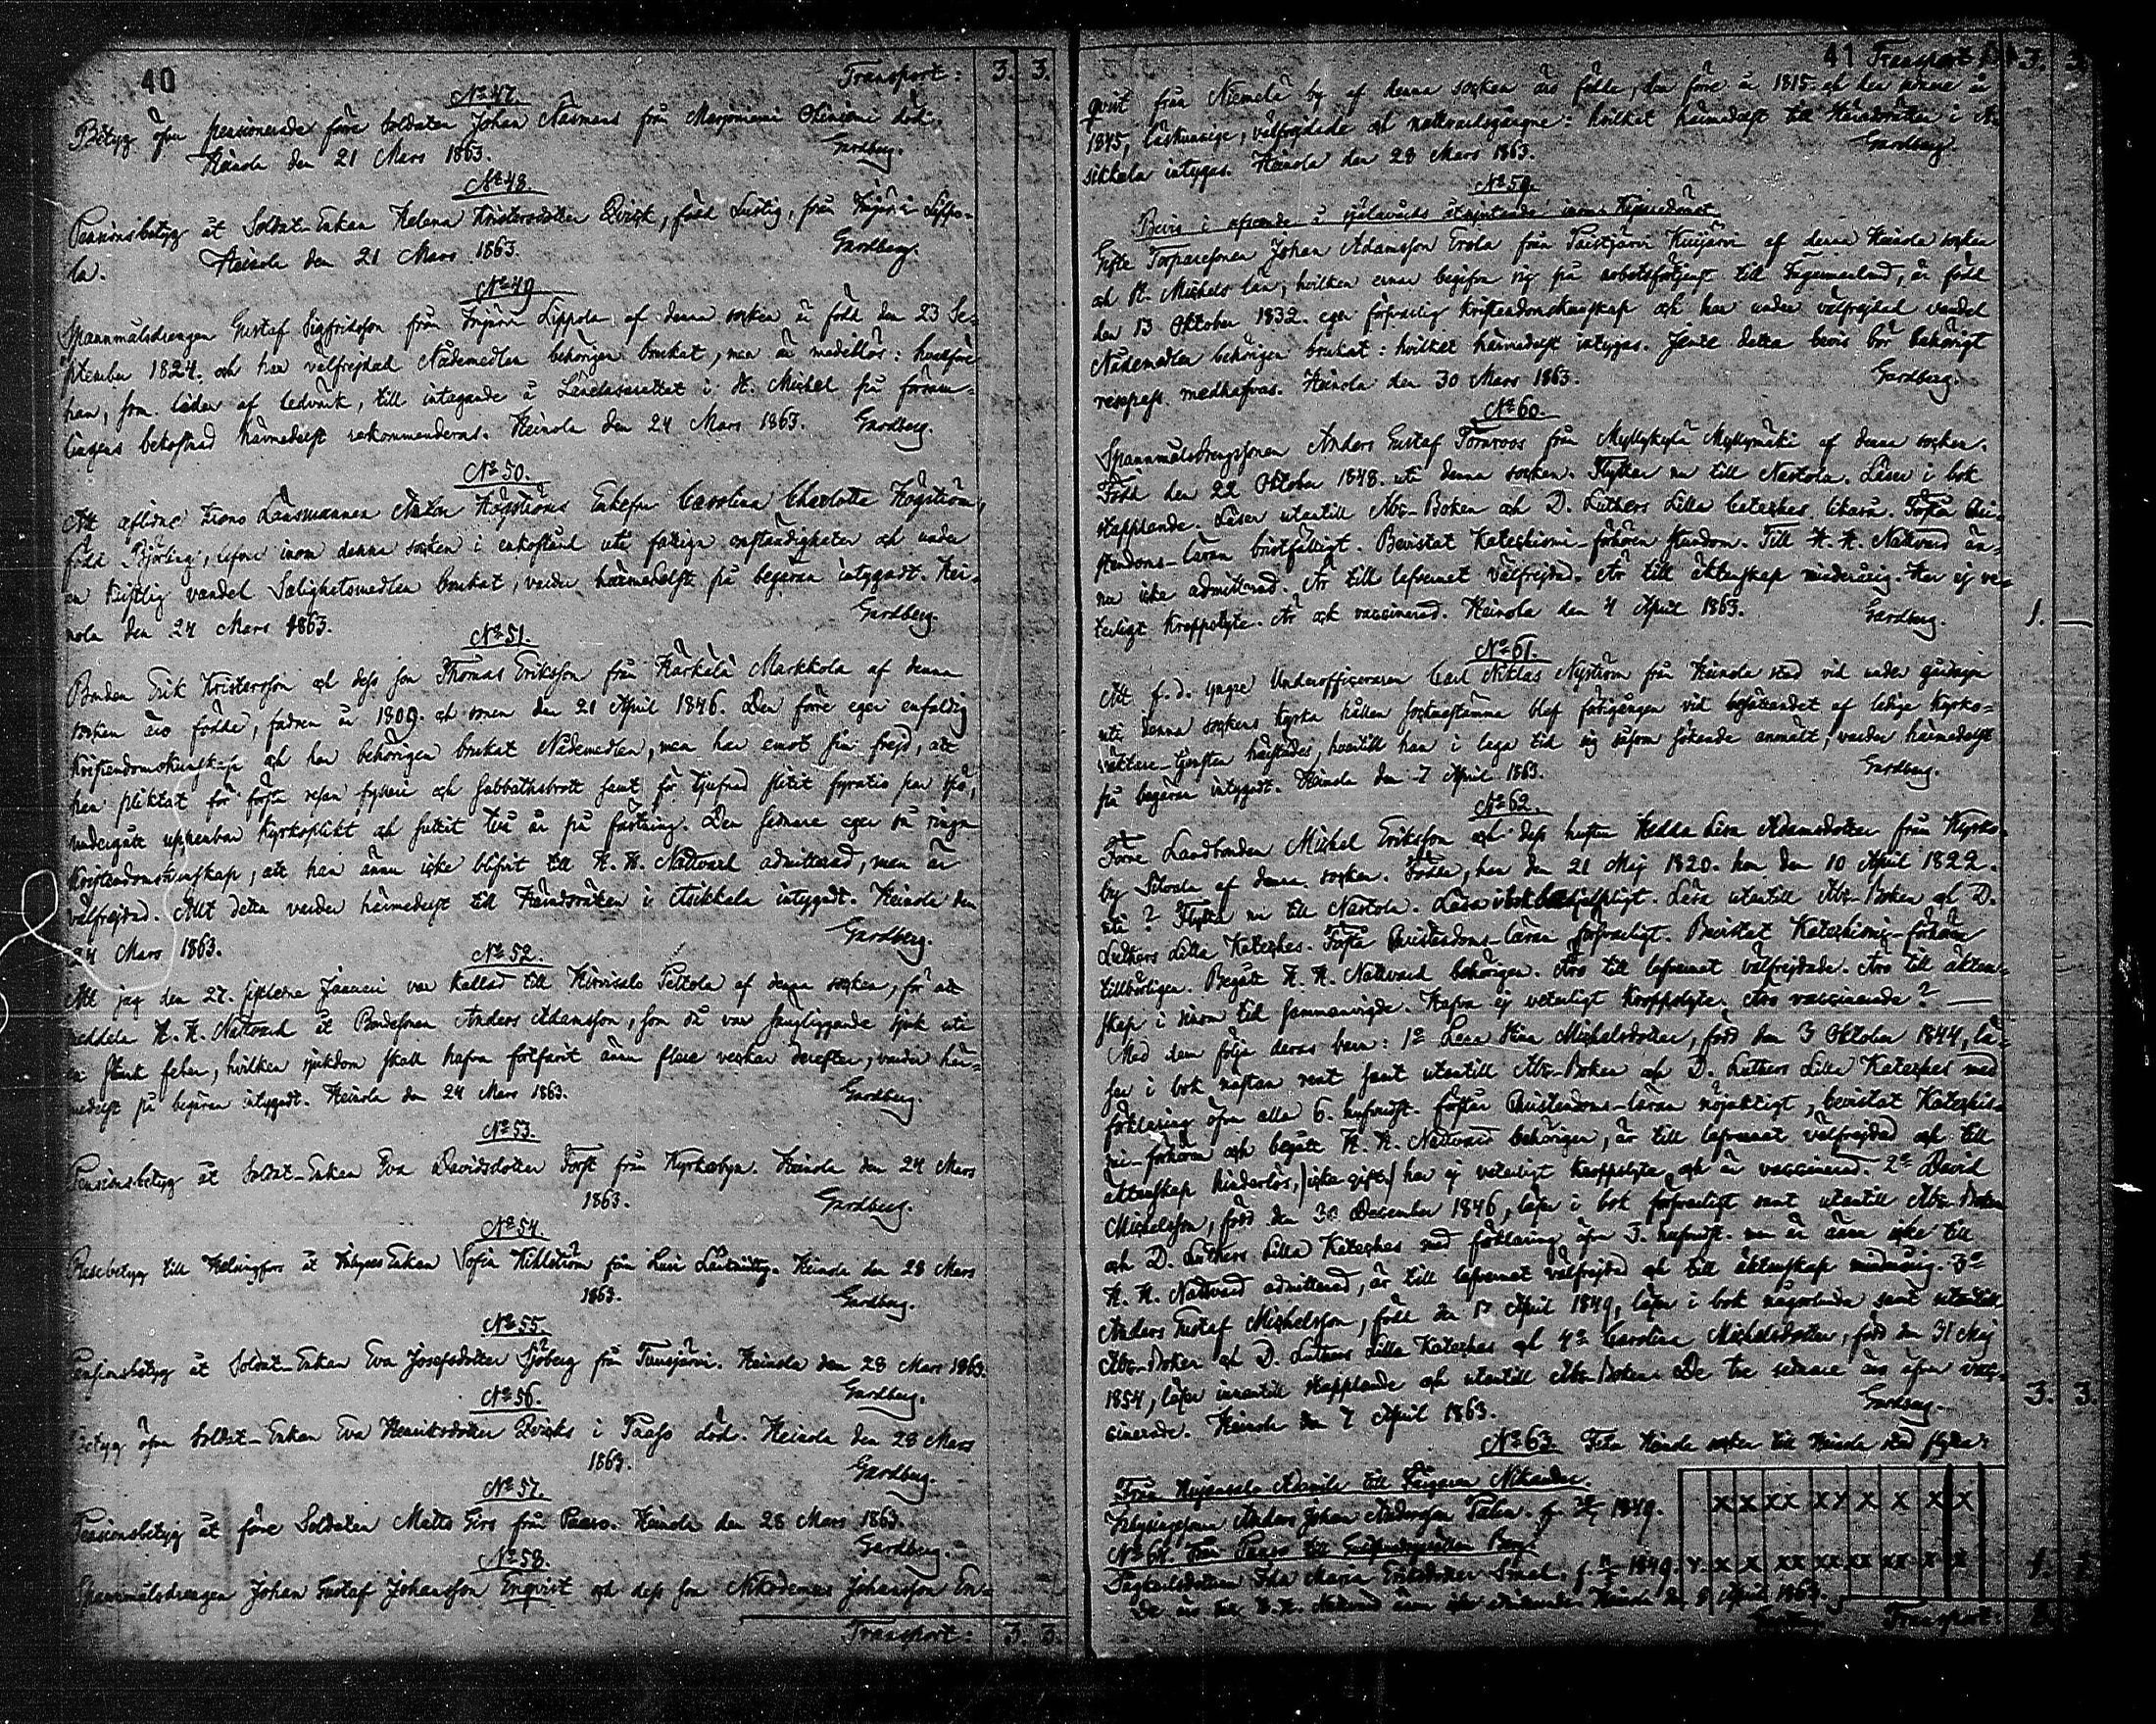 40
Transport: 3. 3.
No 47.
Betyg öfver pensionerade förre Soldaten Johan Näsmans från Marjoniemi död.
Heinola den 21 Mars 1863. Gardberg.
No 48.
Pensionsbetyg åt Soldat-Enkan Helena Kristersdotter Qvick, född Lustig, från Lippo-
la. Heinola den 21 Mars 1863. Gardberg.
No 49
Spannmålsdrängen Gustaf Sigfridsson från Lippola af denna socken är född den 23 Se-
ptember 1824. och har välfrejdad Nådemedlen behörigen brukat, men är medellös: hvarföre
han, som lider af ledvärk, till intagande å Länelasarettet i St. Michel på försam-
lingens bekostnad härmedelst rekommenderas. Heinola den 24 Mars 1863. Gardberg.
No 50.
Att aflidne Krono Länsmannen Högströms Enkefru Carolina Charlotta Högström,
född Björling, lefver inom denna socken i enkestånd uti fattiga omständigheter och under
en kristlig vandel Salighetsmedlen brukat, varder härmedelst på begäran intygadt. Hei-
nola den 24 Mars 1863. Gardberg.
No 51.
Bonden Erik Kristersson och dess son Thomas Eriksson från Härkälä Markkola af denna
socken äro födde, fadren år 1809. och sonen den 21 April 1846. Den förre eger enfaldig
Kristendomskunskap och har behörigen brukat Nådemedlen, men har emot sin frejd, att
han pliktat för första resan fylleri och Sabbathsbrott samt för tjufnad slitit fyratio par spö,
undergått uppenbar Kyrkoplikt och suttit två år på fästning. Den sednare eger så ringa
Kristendomskunskap, att han ännu icke blifvit till H. H. Nattvard admitterad, men är
välfrejdad. Allt detta varder härmedelst till Häradsrätten i Asikkala intygadt. Heinola den
24 Mars 1863. Gardberg.
No 52.
Att jag den 27. sistledne Januari var kallad till Hirvisalo Peltola af denna socken, för att
meddela H. H. Nattvard åt Bondesonen Anders Adamsson, som då var sängliggande sjuk uti
en stark feber, hvilken sjukdom skall hafva fortfarit ännu flere veckor derefter, varder här-
medelst på begäran intygadt. Heinola den 24 Mars 1863. Gardberg.
No 53.
Pensionsbetyg åt Soldat-Enkan Eva Davidsdotter Forst från Kyrkobyn. Heinola den 24 Mars
1863. Gardberg.
No 54.
Resebetyg till Helsingfors åt Enkan Sofia från Lusi. Heinola den 28 Mars
1863. Gardberg.
No 55.
Pensionsbetyg åt Soldat-Enkan Eva Josefsdotter Sjöberg från Tausjärvi. Heinola den 28 Mars 1863.
Gardberg.
No 56.
Betyg öfver Soldat-Enkan Eva Henriksdotter Qvicks i Paaso död. Heinola den 28 Mars
1863. Gardberg.
No 57.
Pensionsbetyg åt förre Soldaten Matts Fors från Paaso. Heinola den 28 Mars 1863.
Gardberg.
No 58.
Spannmålsdrängen Johan Gustaf Johansson Enqvist och dess son Nikodemus Johansson En-
Transport: 3. 3.
41 Transport 3.
qvist från Niemelä by af denna socken äro födde, den förre år 1815. och den senare år
1845, läskunnige, välfrejdade och nattvardsgångne: hvilket härmedelst till Häradsrätten i A-
sikkala intygas. Heinola den 28 Mars 1863. Gardberg.
No 59.
Bevis i afseende å själavårds åtnjutande inom Kejsaredömet.
Gifte Torparesonen Johan Adamsson Erola från Paistjärvi af denna Heinola socken
och St. Michels län, hvilken ernar begifva sig på arbetsförtjenst till Ingermanland, är född
den 13 Oktober 1832. eger försvarlig Kristendomskunskap och har under välfrejdad vandel
Nådemedlen behörigen brukat: hvilket härmedelst intygas. Jemte detta bevis bör behörigt
respass medhafvas. Heinola den 30 Mars 1863. Gardberg.
No 60.
Spannmålsdrengssonen Anders Gustaf Törnroos från Myllykylä Myllymäki af denna socken.
Född den 22 Oktober 1848. uti denna socken. Flyttar nu till Nastola. Läser i bok
stapplande. Läser utantill Abc-Boken och D. Luthers Lilla Cateches likaså. Förstår Chri-
stendoms-läran bristfälligt. Bevistat Katechismi-förhören stundom. Till H. H. Nattvard än-
nu icke admitterad. Är till lefvernet välfrejdad. Är till äktenskap minderårig. Har ej ve-
terligt kroppslyte. Är och vaccinerad. Heinola den 4 April 1863. Gardberg. 1. —
No 61.
Att f.d. yngre Underofficeraren Carl Niklas Nyström från Heinola stad vid under gårdagen
uti denna sockens Kyrka hållen sockenstämma blef förbigången vid besättandet af lediga Kyrko-
väktare-tjensten härstädes, hvartill han i laga tid sig såsom sökande anmält, varder härmedelst
på begäran intygadt. Heinola den 7 April 1863. Gardberg.
No 62.
Förre Landbonden Michel Eriksson och dess hustru Hedda Lisa Adamsdotter från Kyrko-
by Silvola af denna socken. Födde, han den 21 Maj 1820. hon den 10 April 1822.
uti? Flytta nu till Nastola. Läsa i bok behjelpligt. Läsa utantill Abc-Boken och D.
Luthers Lilla Kateches. Förstå Christendoms-läran försvarligt. Bevistat Katechismi-förhören
tillbörligen. Begått H. H. Nattvard behörigen. Äro till lefvernet välfrejdade. Äro till äkten-
skap i sinom tid sammanvigde. Hafva ej veterligt kroppslyte. Äro vaccinerade? —
Med dem följa deras barn: 1o Lena Stina Michelsdotter, född den 3 Oktober 1844, lä-
ser i bok nästan rent samt utantill Abc-Boken och D. Luthers Lilla Kateches med
förklaring öfver alla 6. hufvudst. förstår Christendoms-läran nöjaktigt, bevistat Katechis-
mi-förhören och begått H. H. Nattvard behörigen, är till lefvernet välfrejdad och till
äktenskap hinderlös, (icke gift) har ej veterligt kroppslyte och är vaccinerad. 2o David
Michelsson, född den 30 December 1846, läser i bok försvarligt samt utantill Abc-Boken
och D. Luthers Lilla Kateches med förklaring öfver 3. hufvudst. men är ännu icke till
H. H. Nattvard admitterad, är till lefvernet välfrejdad och till äktenskap minderårig. 3o
Anders Gustaf Michelsson, född den 17 April 1849, läser i bok någorlunda samt utantill
Abc-Boken och D. Luthers Lilla Kateches och 4o Carolina Michelsdotter, född den 31 Maj
1854, läser innantill stapplande och utantill Abc-Boken. De tre sednare äro äfven vac-
cinerade. Heinola den 7 April 1863. Gardberg. 3. 3.
No 63. Från Heinola socken till Heinola stad flytta:
till Nikander.
Anders Johan Andersson 1849. x x xx x x x x x x
No 64. Från Paaso till Berg.
Ida Maria Eriksdotter Smal. f. 1849. 1. 1.
De äro till H. H. Nattvard ännu icke admitterade. Heinola den 8 April 1863.
Transport: